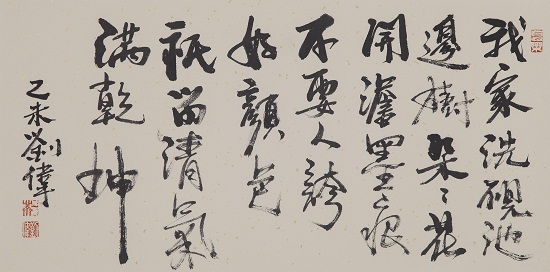 我家洗硯池
邊樹朵々花
開澹墨痕
不要人誇
好顏色
祇留清氣
滿乾坤
乙未劉偉